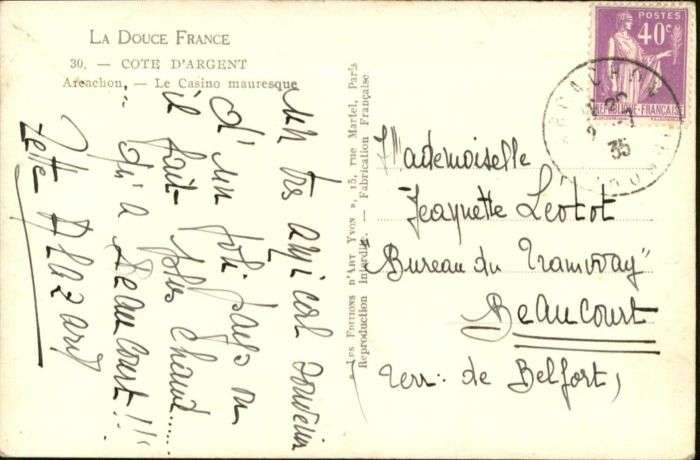 La Douce France
30. — COTE D'ARGENT
Arcachon. — Le Casino mauresque
un très amical souvenir
d'un joli pays où
il fait plus chaud.....
qu'à Beaucourt!!
Zette
« Les Editions d'Art Yvon », 15, rue Martel, Paris
Reproduction Interdite. — Fabrication Française
POSTES
40c
REPUBLIQUE-FRANÇAISE
ARCACHON
35
GIRONDE
Mademoiselle
Jeannette
"Bureau du Tramway"
Beaucourt
Terr: de Belfort,